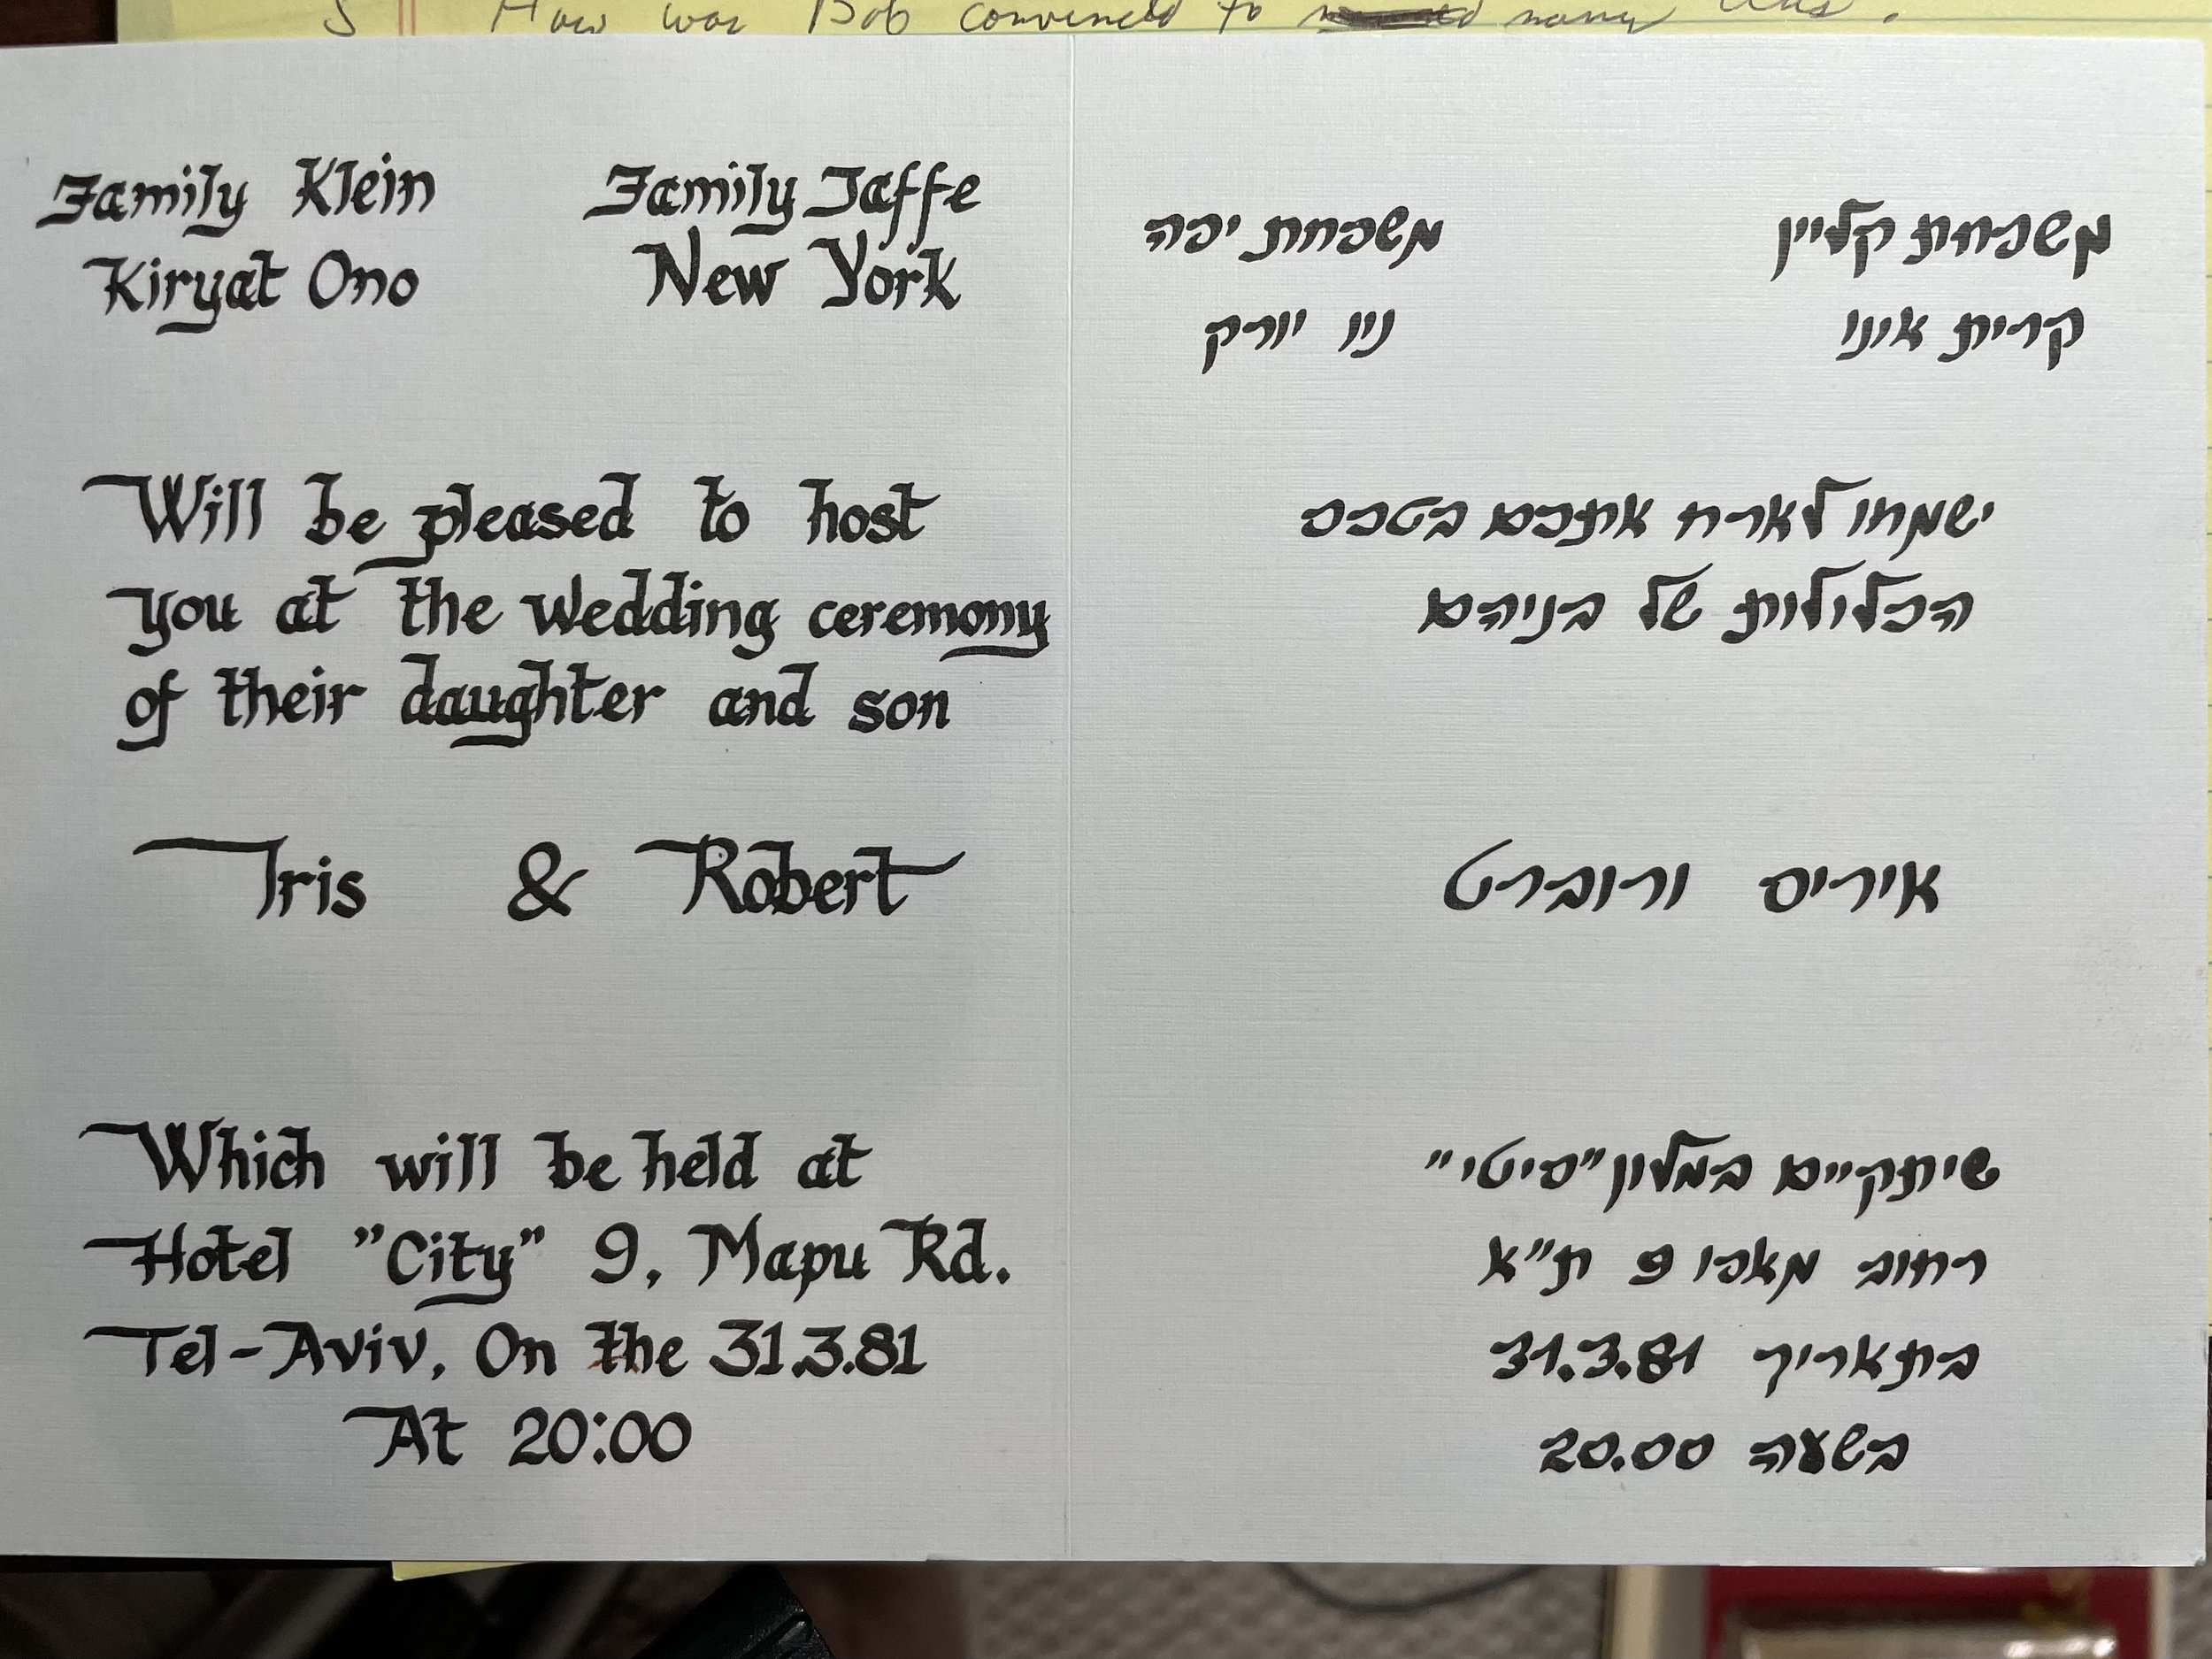 5 How was Bob convinced to marry
Family Klein Family Jaffe
Kiryat Ono New York
Will be pleased to host
you at the wedding ceremony
of their daughter and son
Iris & Robert
Which will be held at
Hotel "City" 9, Mapu Rd.
Tel-Aviv, On the 31.3.81
At 20:00
משפחת קליין משפחת יפה
קרית אונו ניו יורק
ישמחו לארח אתכם בטכס
הכלולות של בניהם
איריס ורוברט
שיתקיים במלון "סיטי"
רחוב מאפו 9 ת"א
בתאריך 31.3.81
בשעה 20.00